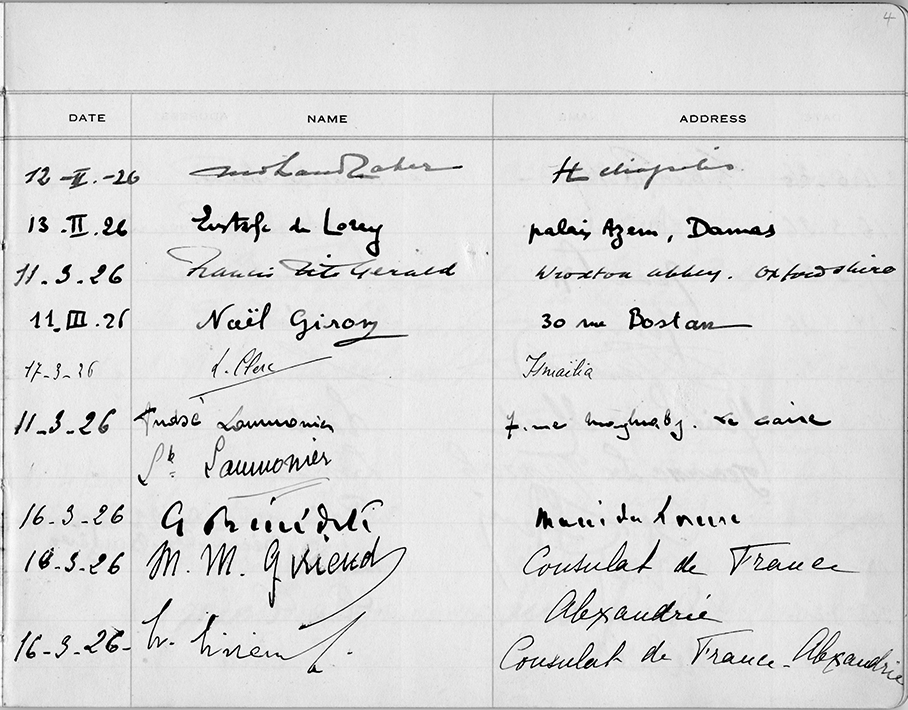 4
DATE NAME ADDRESS
12-II.-26 Heliopolis.
13.II.26 Eustache de Lorey palais Azem, Damas
11.3.26 Francis FitzGerald Wroxton Abbey. Oxfordshire
11.III.26 Noël Giron 30 rue Bostan
17-3-26 Clerc Ismaïlia
11-3-26 André Laumonier 7. rue Le Caire
Laumonier
16-3.26 G Bénédite Musée du Louvre
18-3-26 M. M. Girieud Consulat de France
Alexandrie
16-3.26- Consulat de France-Alexandrie